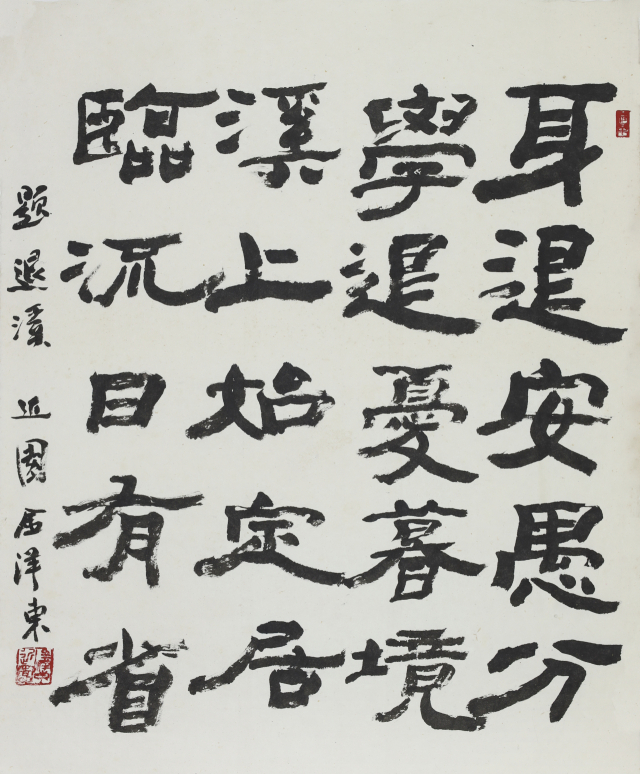 身退安愚分
學退憂暮境
溪上始定居
臨流日有省
題退溪 近園 金洋東